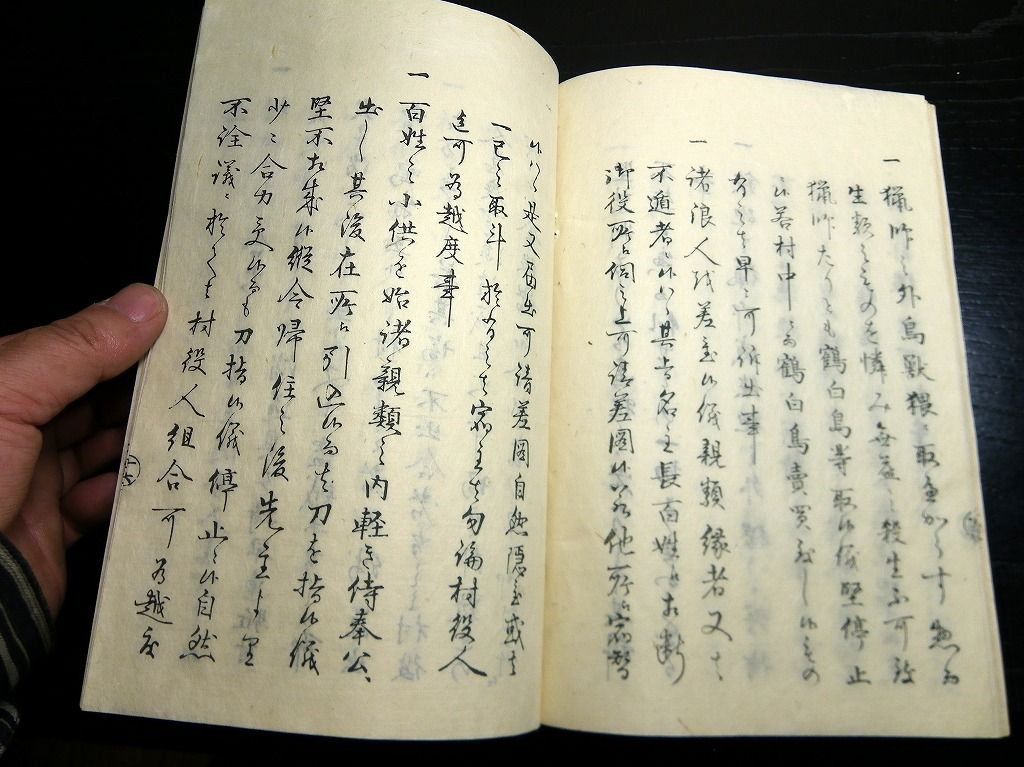 一 猟師之外鳥獣猥ニ取へからす惣而
生類之ものを憐み無益之殺生不可致
猟師たりとも鶴白鳥等取候儀堅停止
候若村中ニ而鶴白鳥売買致し候もの
有之者早々可訴出事
一 諸浪人抱差置候儀親類縁者又者
不遁者ニ候ハヽ其旨名主長百姓江相断
御役所江伺之上可請差図候若他所江宿替
候ハヽ是又届出可請差図自然隠置或者
一己之取斗於有之者宿主者勿論村役人
迄可為越度事
一 百姓之小供を始諸親類之内軽き侍奉公ニ
出し其後在所江引込候而者刀を指候儀
堅不相成候縦令帰住之後先主より聊
少々合力受候而も刀指候儀停止ニ候自然
不詮議ニ於てハ村役人組合可為越度